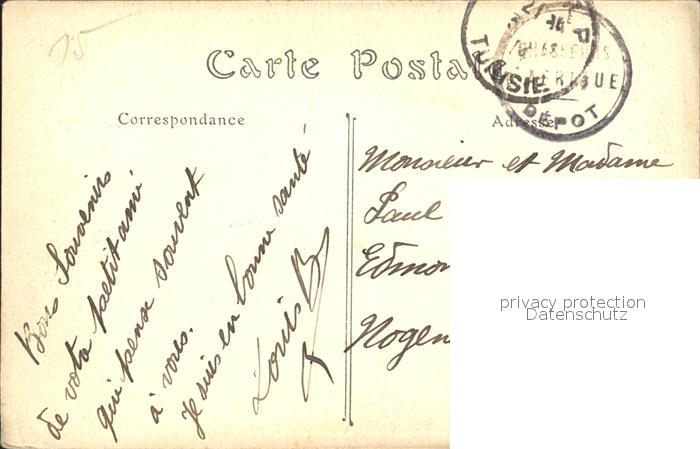 15
Carte Postale
TUNISIE
CHASSEURS
D'AFRIQUE
DÉPOT
Correspondance
Adresse
Bons Souvenirs
de votre petit ami
qui pense souvent
à vous.
Je suis en bonne santé
Louis B
Monsieur et Madame
Paul
Edmon
Nogen
privacy protection
Datenschutz